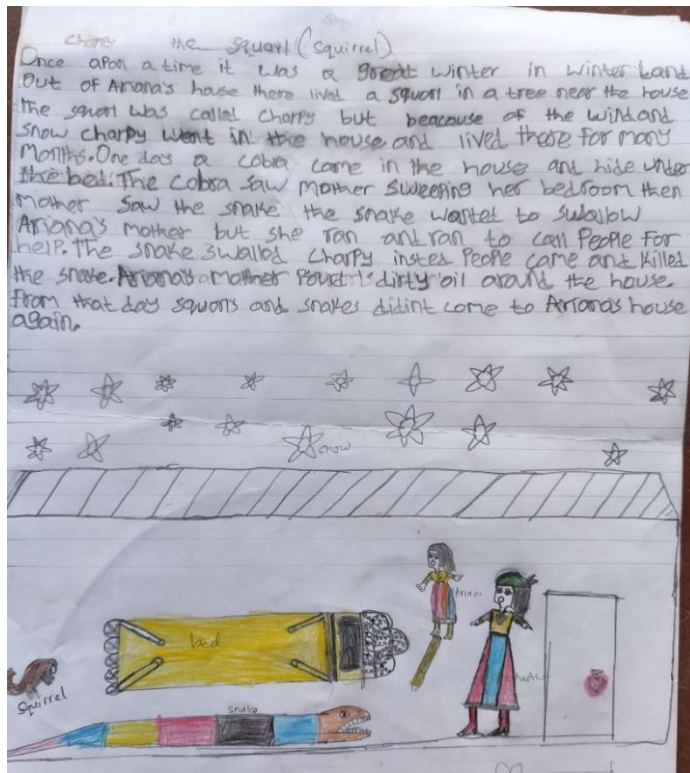 the squarl (squirrel)
Once apon a time it was a great winter in winter land
Out of Ariana's house there lived a squarl in a tree near the house
the squarl was called charpy but beacouse of the wind and
snow charpy went in the house and lived there for many
months. One day a cobra came in the house and hide under
the bed. The cobra saw mother sweeping her bedroom then
mother saw the snake the snake wantet to swallow
Ariana's mother but she ran and ran to call people for
help. The snake swallod charpy insted People came and killed
the snake. Ariana's mother dirty oil around the house.
From that day squarls and snakes didint come to Ariana's house
again.
snow
bed
squirrel
snake